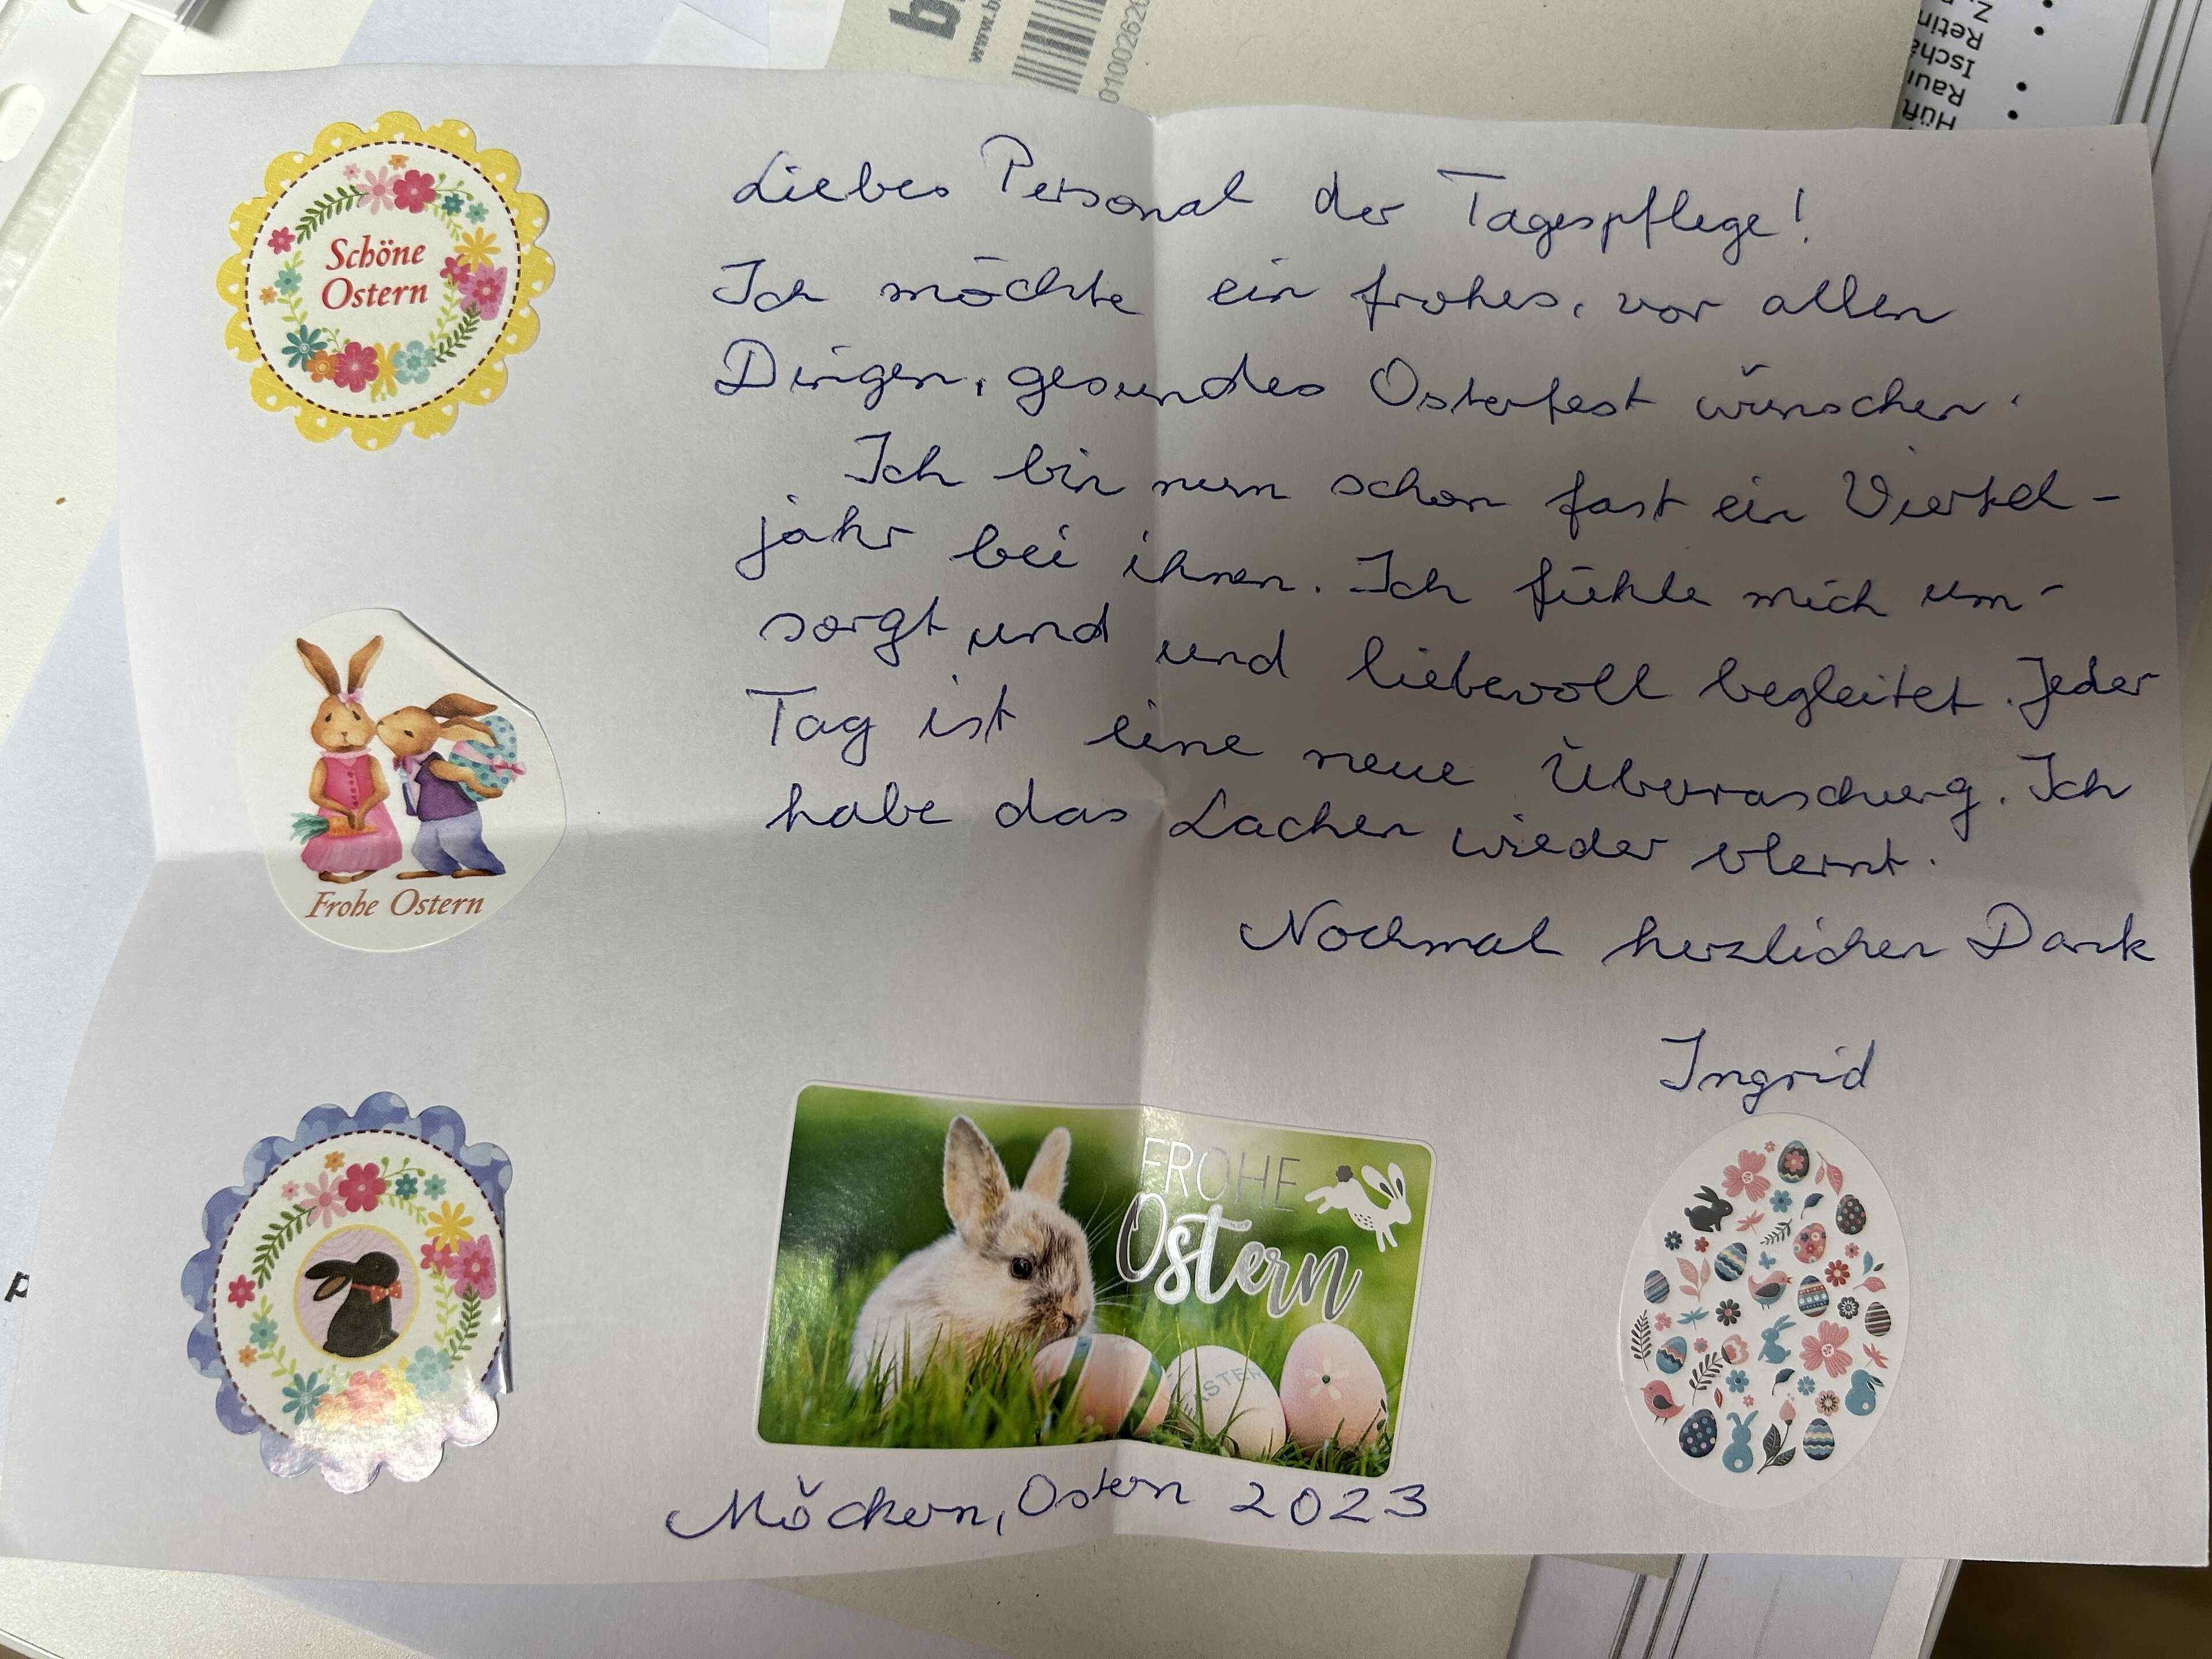 Liebes Personal der Tagespflege!
Ich möchte ein frohes, vor allen
Dingen, gesundes Osterfest wünschen.
Ich bin nun schon fast ein Viertel-
jahr bei ihnen. Ich fühle mich um-
sorgt und und liebevoll begleitet. Jeder
Tag ist eine neue Überraschung. Ich
habe das Lachen wieder erlernt.
Nochmal herzlichen Dank
Ingrid
Möckern, Ostern 2023
Schöne
Ostern
Frohe Ostern
FROHE
Ostern
EASTER
www.b
01000262
Retin
Ischä
Raur
Hüft